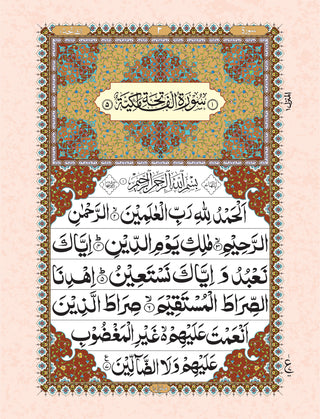 سُوْرَةُ الْفَاتِحَةِ مَكِّيَّةٌ
بِسْمِ اللّٰهِ الرَّحْمٰنِ الرَّحِيْمِ
اَلْحَمْدُ لِلّٰهِ رَبِّ الْعٰلَمِيْنَ ۙ۱ الرَّحْمٰنِ
الرَّحِيْمِ ۙ۲ مٰلِكِ يَوْمِ الدِّيْنِ ؕ۳ اِيَّاكَ
نَعْبُدُ وَ اِيَّاكَ نَسْتَعِيْنُ ؕ۴ اِهْدِنَا
الصِّرَاطَ الْمُسْتَقِيْمَ ۙ۵ صِرَاطَ الَّذِيْنَ
اَنْعَمْتَ عَلَيْهِمْ ۙ۶ غَيْرِ الْمَغْضُوْبِ
عَلَيْهِمْ وَلَا الضَّآلِّيْنَ